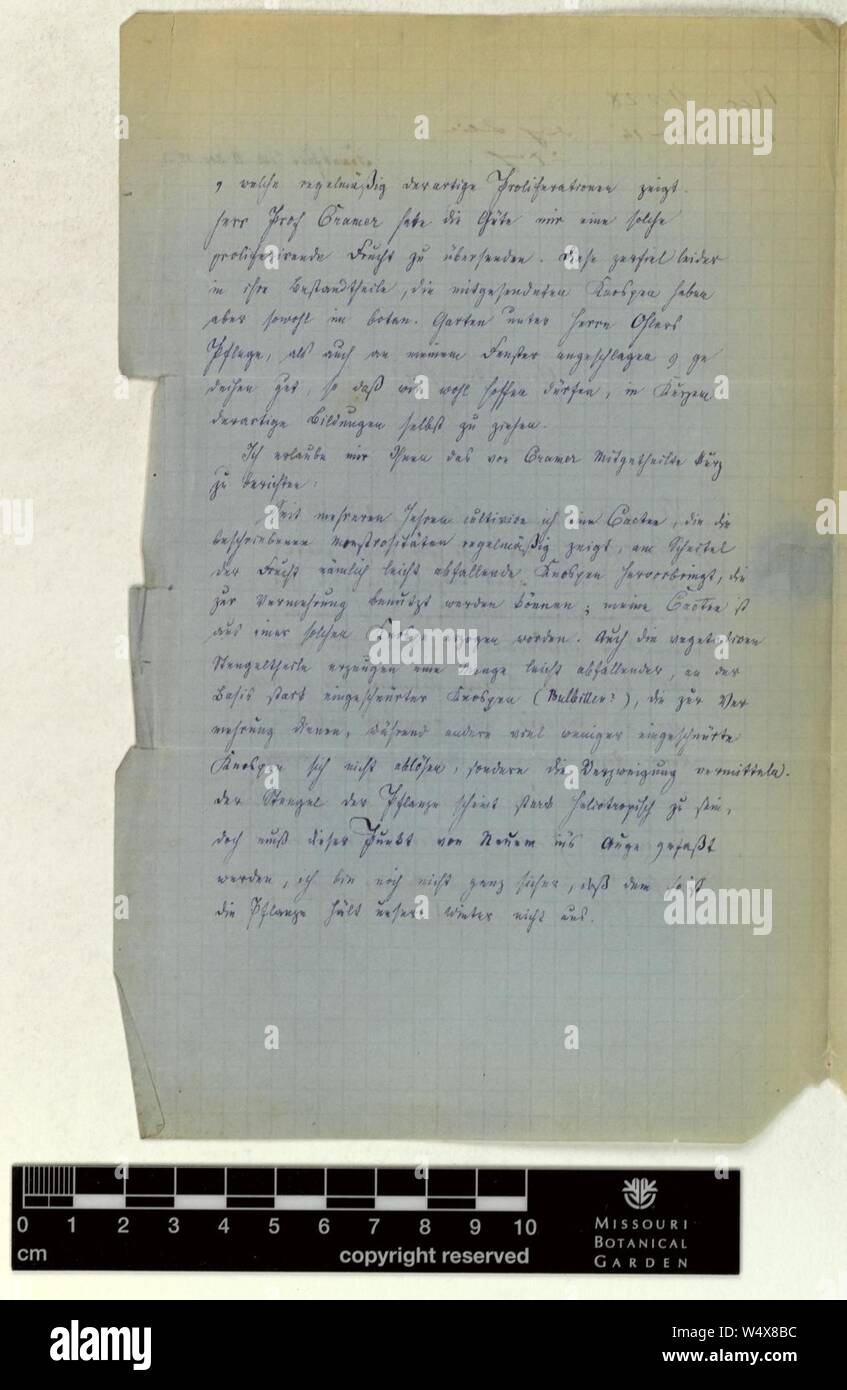 , welche regelmäßig derartige Proliferationen zeigt.
Herr Prof Cramer hatte die Güte mir eine solche
prolificirende Frucht zu übersenden. Diese zerfiel leider
in ihre Bestandtheile, die mitgesendeten Knospen haben
aber sowohl im botan. Garten unter Herrn Ohlers
Pflege, als auch an meinem Fenster angeschlagen u ge
deihen gut, so daß wir wohl hoffen dürfen, in Kurzem
derartige Bildungen selbst zu ziehen.
Ich erlaube mir Ihnen das von Cramer Mitgetheilte kurz
zu berichten:
Seit mehreren Jahren cultivire ich eine Cactee, die die
beschriebenen Monstrositäten regelmäßig zeigt, am Scheitel
der Frucht nämlich leicht abfallende Knospen hervorbringt, die
zur Vermehrung benutzt werden können; meine Cactee ist
aus einer solchen Knospe gezogen worden. Auch die vegetativen
Stengeltheile erzeugen eine Menge leicht abfallender, an der
Basis stark eingeschnürter Knospen (Bulbillen?), die zur Ver
mehrung dienen, während andere viel weniger eingeschnürte
Knospen sich nicht ablösen, sondern die Verzweigung vermitteln.
Der Stengel der Pflanze scheint stark heliotropisch zu sein,
doch muß dieser Punkt von Neuem ins Auge gefaßt
werden, ich bin noch nicht ganz sicher, daß dem so ist
die Pflanze hält unsere Winter nicht aus.
0 1 2 3 4 5 6 7 8 9 10
cm
copyright reserved
MISSOURI
BOTANICAL
GARDEN
alamy
Image ID: W4X8BC
www.alamy.com